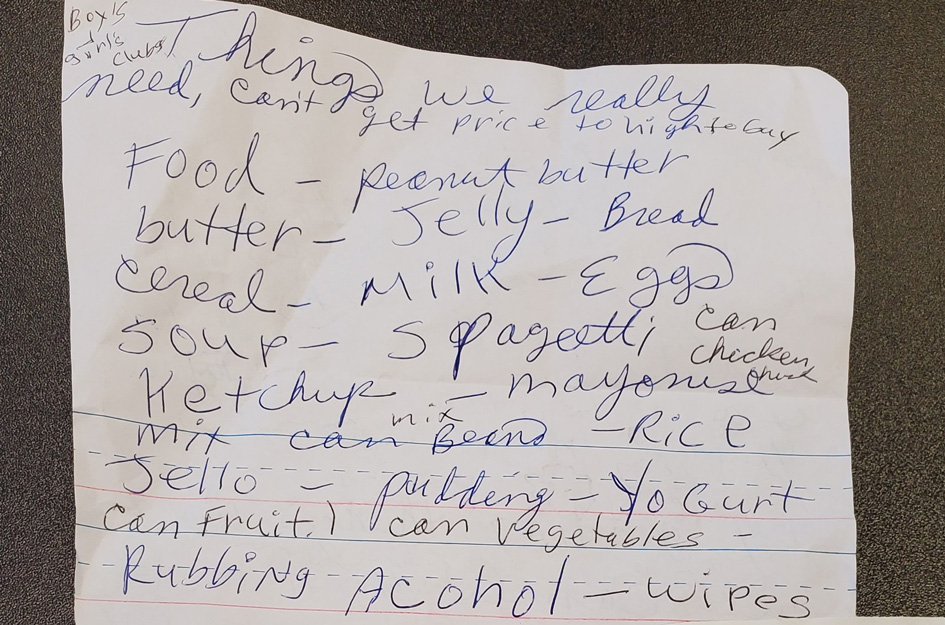 Boy's
+
girl's
clubs
Things we really
need, can't get price to high to buy
Food - peanut butter
butter - Jelly - Bread
Cereal - Milk - Eggs
Soup - Spagetti can
chicken
Ketchup - mayonise
mix can mix Beans - RicE
Jello - pudding - YoGurt
can Fruit. ) can Vegetables -
RubbiNg Acohol - wipes